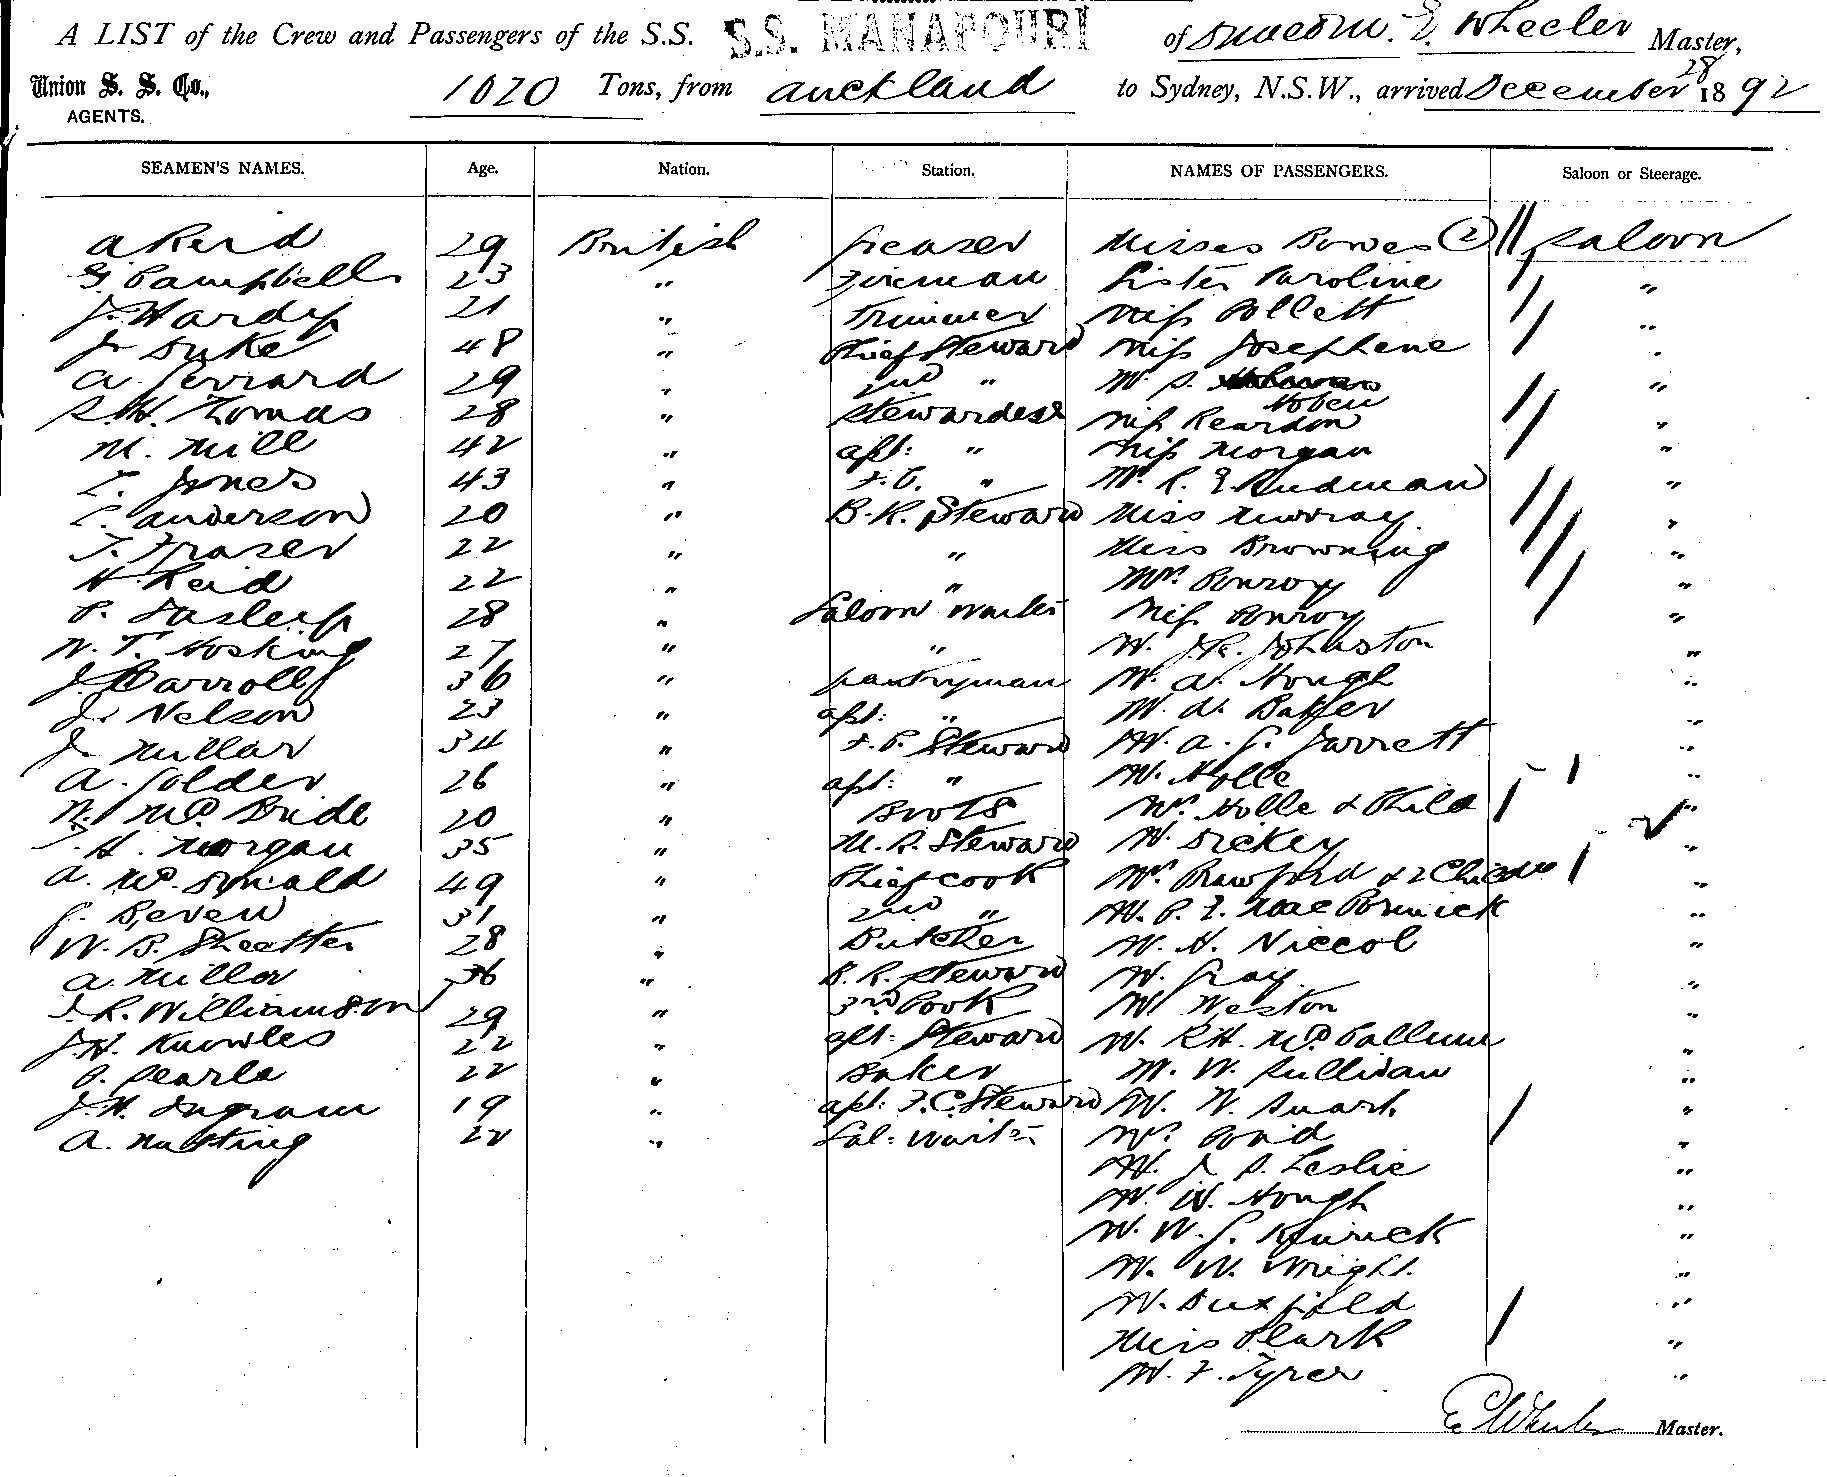 A LIST of the Crew and Passengers of the S.S. S.S. MANAPOURI of Dunedin. E. Wheeler Master,
Union S. S. Co., AGENTS. 1020 Tons, from Auckland to Sydney, N.S.W., arrived December 28 1892
SEAMEN'S NAMES. Age. Nation. Station. NAMES OF PASSENGERS. Saloon or Steerage.
A Reid 29 British Greaser Misses Bowes (2) Saloon
G Campbell 23 " Fireman Sister Caroline "
J. Hardy 21 " Trimmer Miss Collett "
J Duke 48 " Chief Steward Miss Josephene "
A. Gerrard 29 " 2nd " Mr S. Hoben "
S. H. Lomas 28 " Stewardess Miss Reardon "
M. Mill 42 " asst: " Miss Morgan "
Jones 43 " F.C. " Mr R. E. Rudman "
C. Anderson 20 " B.R. Steward Miss Murray "
T. Fraser 22 " " Miss Browning "
H Reid 22 " " Mrs Conroy "
P. Tasleip 28 " Saloon Waiter Miss Conroy "
W. T. Hosking 27 " " Mr J.R. Johnston "
J. Carroll 36 " Pantryman Mr A. Hough "
J. Nelson 23 " asst: " Mr W. "
J. Millar 34 " F.C. Steward Mr A. G. Jarrett "
A. Golder 26 " asst: " Mr Holle "
W. McBride 20 " Boots Mrs Holle & Child "
H. Morgan 35 " M.R. Steward Mr Dickey "
A. McDonald 49 " Chief Cook Mrs Crawford & 2 "
G. Beven 31 " 2nd " Mr C. F. MacCormick "
W. B. 28 " Butcher Mr H. Niccol "
A. Millar 36 " B.R. Steward Mr Gray "
J. R. Williamson 29 " 3rd Cook Mr Weston "
J. H. Knowles 22 " asst: Steward Mr R.H. McCallum "
Searle 22 " Baker Mr W. Sullivan "
J. H. Ingram 19 " asst: F.C. Steward Mr W. "
A. Nutting 22 " Sal: Waiter Mrs "
Mr J. S. Leslie "
Mr W. Hough "
Mr W. G. Kenrick "
Mr W. Wright "
Mr Duxfield "
Miss Clark "
Mr F. Tyrer "
E Wheeler Master.